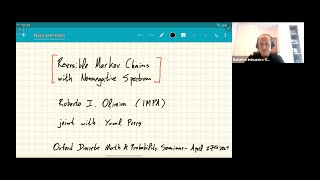 Reversible Markov Chains
with Nonnegative Spectrum
Roberto I. Oliveira (IMPA)
joint with Yuval Peres
Oxford Discrete Math & Probability Seminar - April 27th 2021